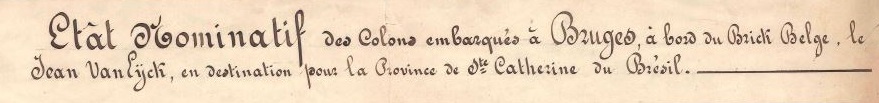 Etât Nominatif des Colons embarqués à Bruges, à bord du Brick Belge, le
Jean Van Eÿck, en destination pour la Province de Ste Catherine du Brésil.